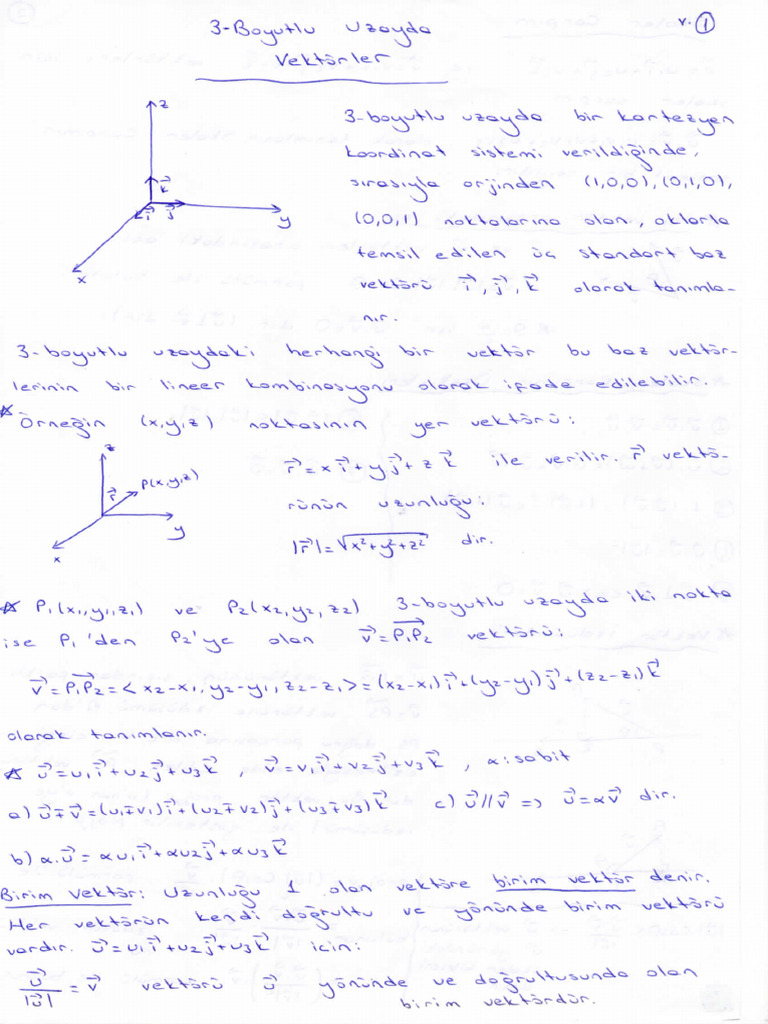 3-Boyutlu Uzayda
v. 1
Vektörler
z
k⃗
i⃗ j⃗
y
x
3-boyutlu uzayda bir kartezyen
koordinat sistemi verildiğinde,
sırasıyla orjinden (1,0,0), (0,1,0),
(0,0,1) noktalarına olan, oklarla
temsil edilen üç standart baz
vektörü i⃗, j⃗, k⃗ olarak tanımla-
nır.
3-boyutlu uzaydaki herhangi bir vektör bu baz vektör-
lerinin bir lineer kombinasyonu olarak ifade edilebilir.
* Örneğin (x,y,z) noktasının yer vektörü:
z
r⃗ P(x,y,z)
y
x
r⃗ = x i⃗ + y j⃗ + z k⃗ ile verilir. r⃗ vektö-
rünün uzunluğu:
|r⃗| = √(x²+y²+z²) dir.
* P₁(x₁,y₁,z₁) ve P₂(x₂,y₂,z₂) 3-boyutlu uzayda iki nokta
ise P₁'den P₂'ye olan v⃗ = P₁P₂⃗ vektörü:
v⃗ = P₁P₂⃗ = < x₂-x₁, y₂-y₁, z₂-z₁ > = (x₂-x₁) i⃗ + (y₂-y₁) j⃗ + (z₂-z₁) k⃗
olarak tanımlanır.
* u⃗ = u₁ i⃗ + u₂ j⃗ + u₃ k⃗ , v⃗ = v₁ i⃗ + v₂ j⃗ + v₃ k⃗ , α: sabit
a) u⃗ ∓ v⃗ = (u₁ ∓ v₁) i⃗ + (u₂ ∓ v₂) j⃗ + (u₃ ∓ v₃) k⃗ c) u⃗ // v⃗ => u⃗ = α v⃗ dir.
b) α. u⃗ = α u₁ i⃗ + α u₂ j⃗ + α u₃ k⃗
Birim Vektör: Uzunluğu 1 olan vektöre birim vektör denir.
Her vektörün kendi doğrultu ve yönünde birim vektörü
vardır. u⃗ = u₁ i⃗ + u₂ j⃗ + u₃ k⃗ için:
u⃗/|u⃗| = v⃗ vektörü u⃗ yönünde ve doğrultusunda olan
birim vektördür.